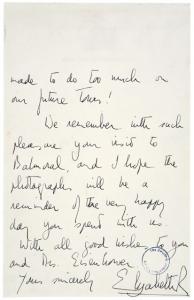 made to do too much on
our future Tours!
We remember with such
pleasure your visit to
Balmoral, and I hope the
photographs will be a
reminder of the very happy
day you spent with us.
With all good wishes to you
and Mrs. Eisenhower
Yours sincerely
Elizabeth R